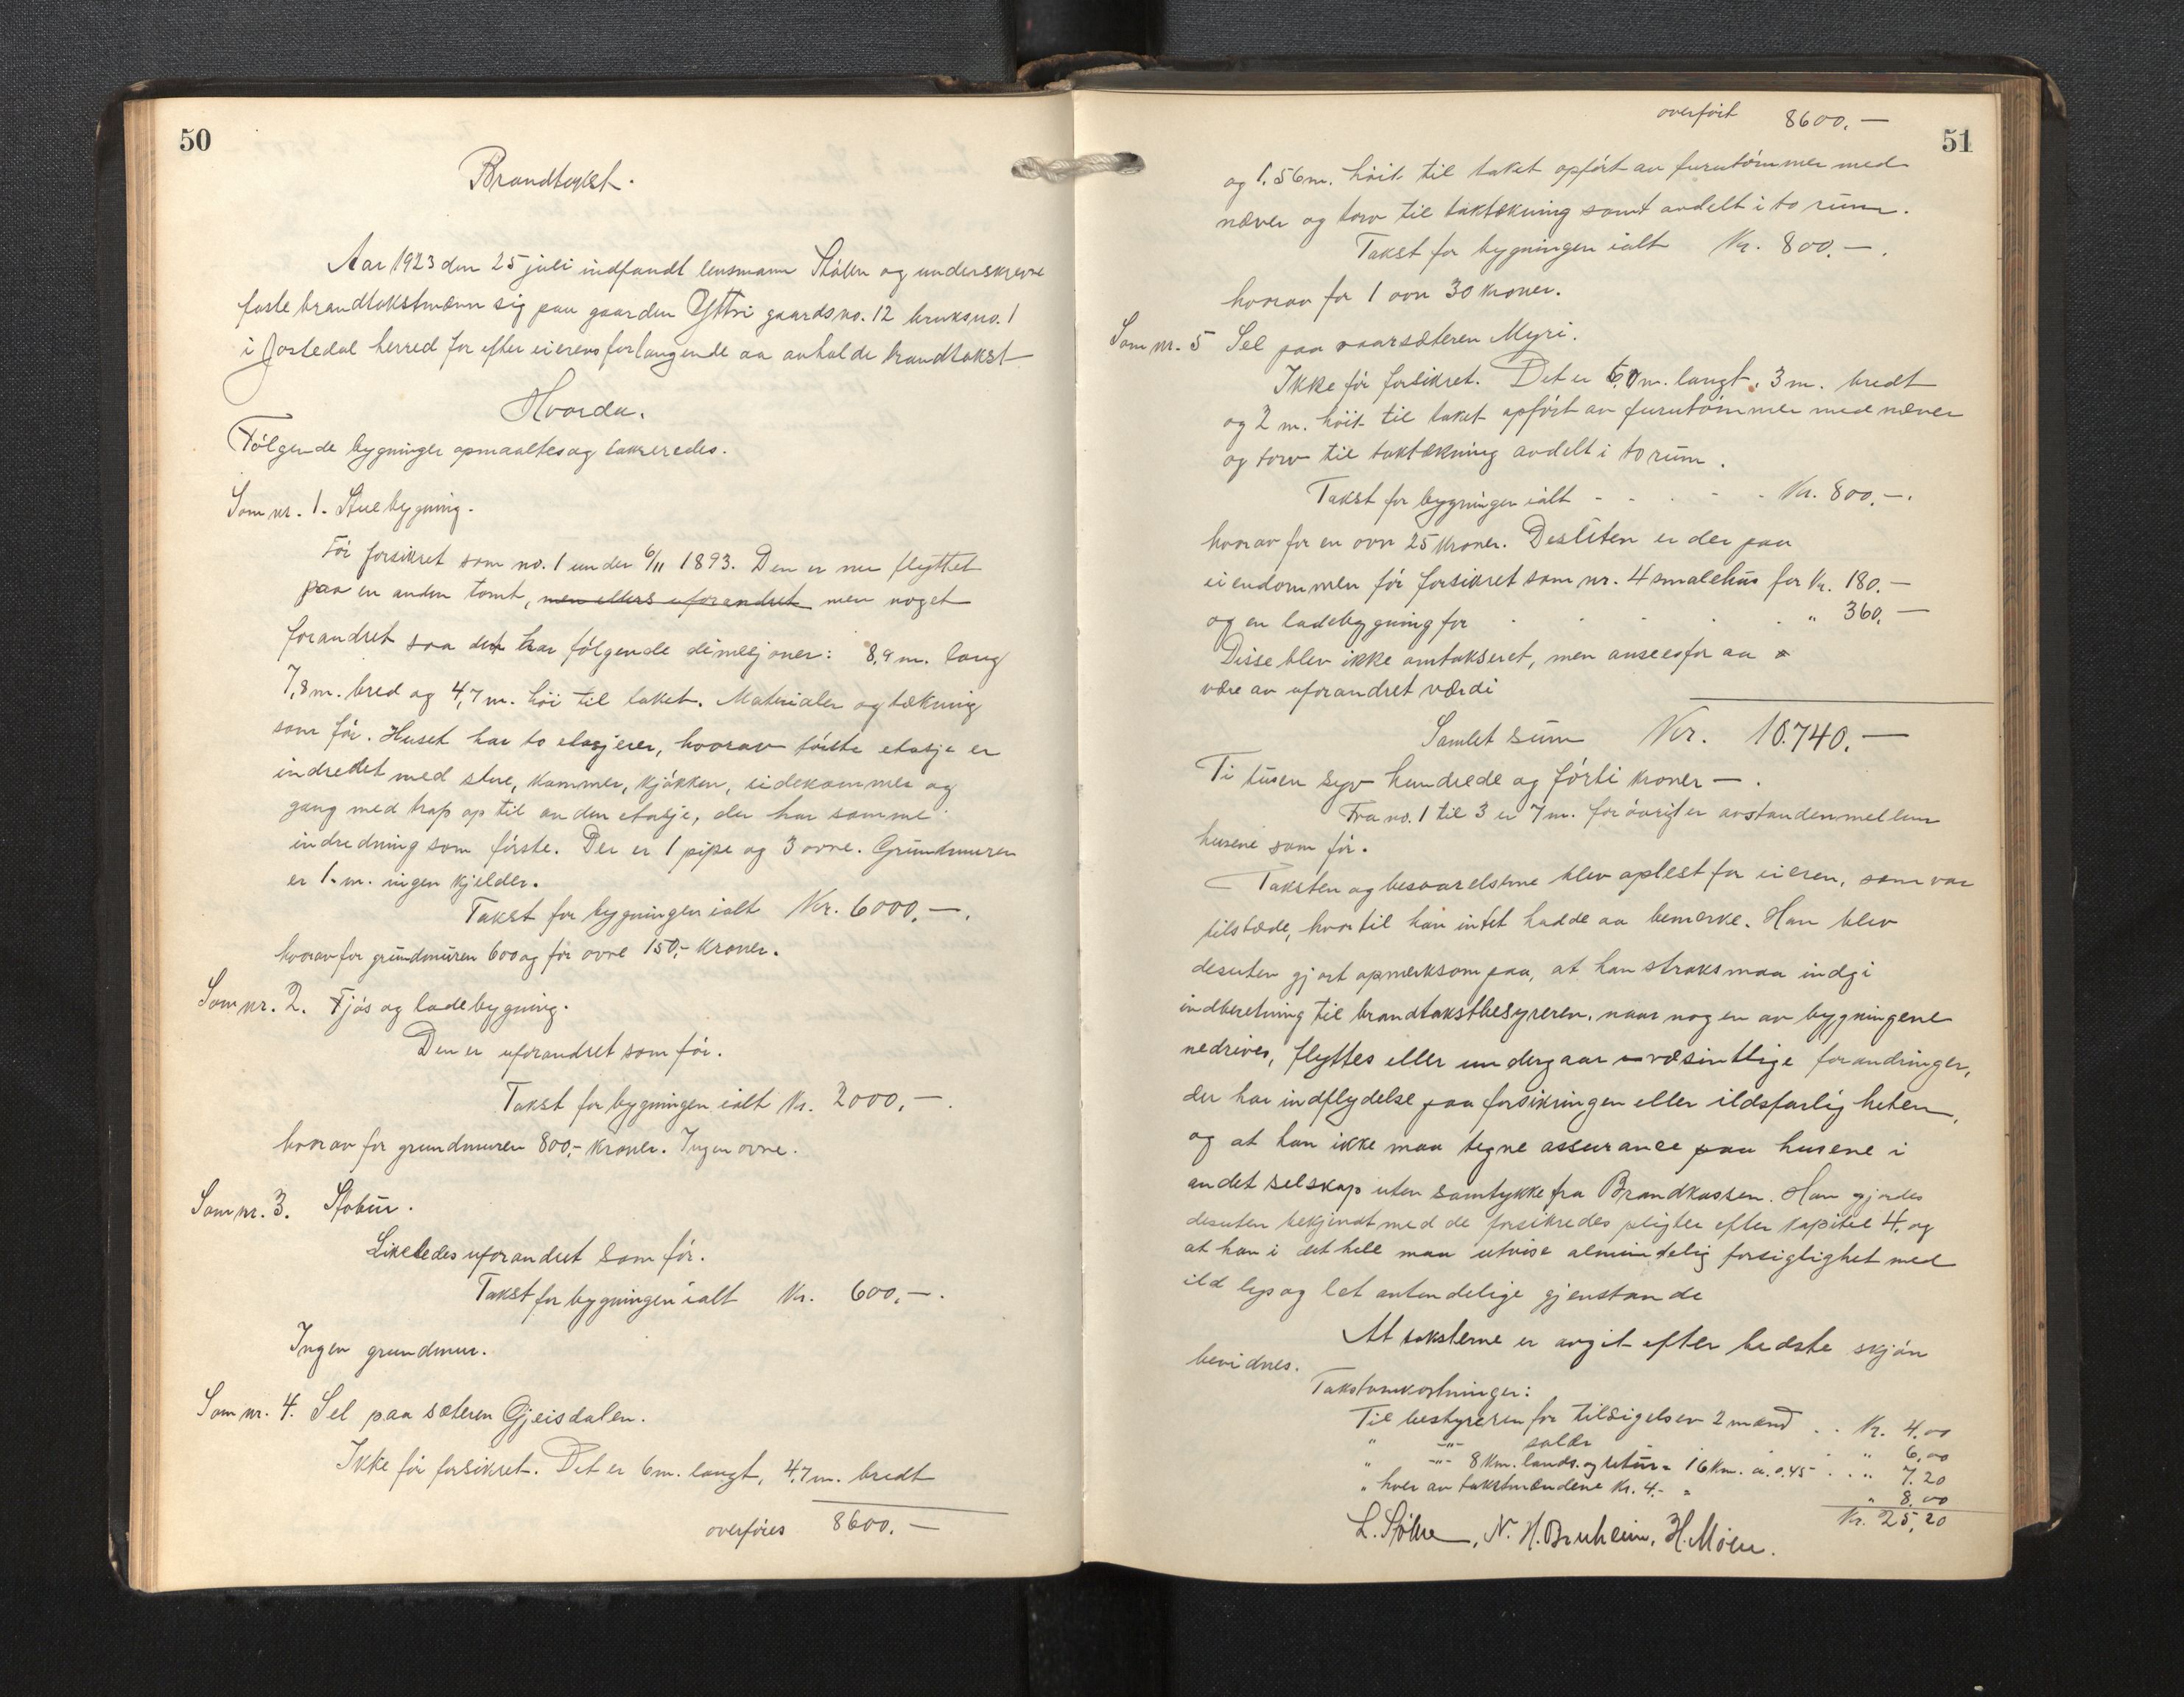 50
Brandtakst.
Aar 1923 den 25 juli indfandt lensmann Stölen og underskrevne
faste brandtakstmænn sig paa gaarden Yttri gaardsno. 12 bruksno. 1
i Jostedal herred for efter eierens forlangende aa avholde brandtakst
Hvorda.
Fölgende bygninger opmaaltes og takseredes.
Som nr. 1. Stuebygning.
För forsikret som no. 1 under 6/11 1893. Den er nu flyttet
paa en anden tomt, men ellers uforandret men noget
forandret saa den har fölgende dimesjoner: 8,9 m. lang
7,8 m. bred og 4,7 m. höi til taket. Materialer og tækning
som för. Huset har to etasjerer, hvorav förste etasje er
indredet med stue, kammer, kjökken, sidekammer og
gang med trap op til anden etasje, der har samme
indredning som förste. Der er 1 pipe og 3 ovne. Grundmuren
er 1. m. ingen kjelder.
Takst for bygningen ialt Kr. 6000,—.
hvorav for grundmuren 600 og for ovne 150,- kroner.
Som nr. 2. Fjös og ladebygning.
Den er uforandret som för.
Takst for bygningen ialt Kr. 2000,—.
hvorav for grundmuren 800,- kroner. Ingen ovne.
Som nr. 3. Stabur.
Likeledes uforandret som för.
Takst for bygningen ialt Kr. 600,—.
Ingen grundmur.
Som nr. 4. Sel paa sæteren Gjeisdalen.
Ikke för forsikret. Det er 6 m. langt, 4,7 m. bredt
overföres 8600,—
overfört 8600,—
51
og 1,56 m. höit til taket opfört av furutömmer med
næver og torv til taktækning samt avdelt i to rum.
Takst for bygningen ialt Kr. 800,—.
hvorav for 1 ovn 30 kroner.
Som nr. 5 Sel paa vaarsæteren Myri.
Ikke för forsikret. Det er 6,0 m. langt, 3 m. bredt
og 2 m. höit til taket opfört av furutömmer med næver
og torv til taktækning avdelt i to rum.
Takst for bygningen ialt - - . - . Kr. 800,—.
hvorav for en ovn 25 kroner. Desuten er der paa
eiendommen för forsikret som nr. 4 smalehus for Kr. 180,—
og en ladebygning for . . . . . " 360,—
Disse blev ikke omtakseret, men ansees for aa
være av uforandret værdi
Samlet sum Kr. 10.740,—
Ti tusen syv hundrede ogförti kroner —.
Fra no. 1 til 3 er 7 m. for övrigt er avstanden mellem
husene som för.
Taksten og besvarelsene blev oplest for eieren, som var
tilstede, hvortil han intet hadde aa bemerke. Han blev
desuten gjort opmerksom paa, at han straks maa indgi
indberetning til brandtakstbestyreren, naar nogen av bygningene
nedrives, flyttes eller undergaar væsintlige forandringer,
der har indflydelse paa forsikringen eller ildsfarligheten,
og at han ikke maa tegne assurance paa husene i
andet selskap uten samtykke fra Brandkassen. Han gjordes
desuten bekjendt med de forsikredes pligter efter kapitel 4, og
at han i det hele maa utvise almindelig forsiglighet med
ild lys og let antendelige gjenstande
At taksterne er avgit efter bedste skjön
bevidnes.
Takstomkostninger:
Til bestyreren for tilsigelsen 2 mænd . . Kr. 4,00
" —"— salær . " 6,00
" —"— 8 Km. lands. og retur = 16 Km. á. 0.45 . . . " 7.20
" hver av takstmændene Kr. 4.- = " 8,00
Kr. 25,20
L. Stölen, N. H. Bruheim, H. Moen.